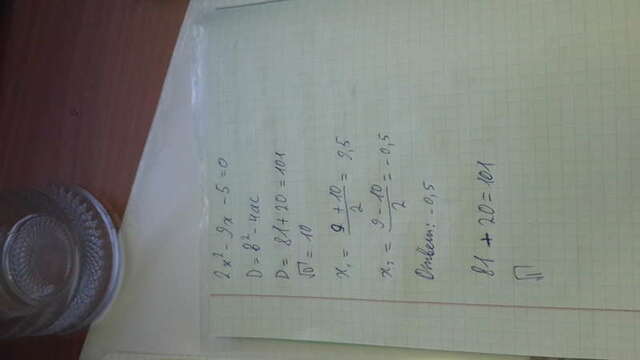 2x² - 9x - 5 = 0
D = b² - 4ac
D = 81 + 20 = 101
√D = 10
x₁ = (9 + 10)/2 = 9,5
x₂ = (9 - 10)/2 = -0,5
Ответ: -0,5
81 + 20 = 101
√